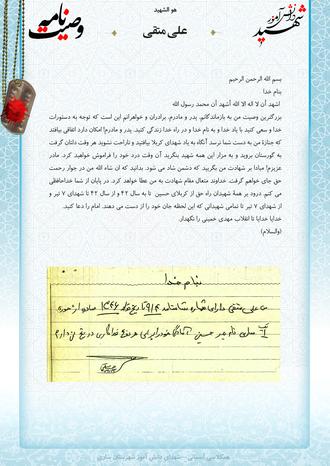 هو الشهید
علی متقی
وصیت نامه
شهید
دانش آموز
بسم الله الرحمن الرحیم
بنام خدا
اشهد أن لا اله الا الله أشهد أن محمد رسول الله
بزرگترین وصیت من به بازماندگانم، پدر و مادرم، برادران و خواهرانم این است که توجه به دستورات
خدا و سعی کنید با یاد خدا و به نام خدا و در راه خدا زندگی کنید. پدر و مادرم! امکان دارد اتفاقی بیافتد
که جنازهٔ من به دست شما نرسد آنگاه به یاد شهدای کربلا بیافتید و ناراحت نشوید هر وقت دلتان گرفت
به گورستان بروید و به مزار این همه شهید بنگرید آن وقت درد خود را فراموش خواهید کرد. مادر
عزیزم! مبادا بر شهادت من بگریید که دشمن شاد می شود. بدانید که ان شاء الله من در جوار رحمت
حق جای خواهم گرفت. خداوند متعال مقام شهادت به من عطا خواهد کرد. در پایان از شما خداحافظی
می کنم. درود بر همهٔ شهیدان راه حق از کربلای حسین تا به سال ۴۲ و از سال ۴۲ تا شهدای ۷ تیر و
از شهدای ۷ تیر تا تمامی شهیدانی که این لحظه جان خود را از دست می دهند. امام را دعا کنید.
خدایا خدایا تا انقلاب مهدی خمینی را نگهدار.
(والسلام)
بنام خدا
علی متقی دارای شماره شناسنامه ۹۱۴ تاریخ تولد ۱۳۴۶ صادره از حوزه
ساری نام پدر حسین آمادگی خود را برای هر نوع فداکاری دریغ ندارم
همکلاسی آسمانی - شهدای دانش آموز شهرستان ساری